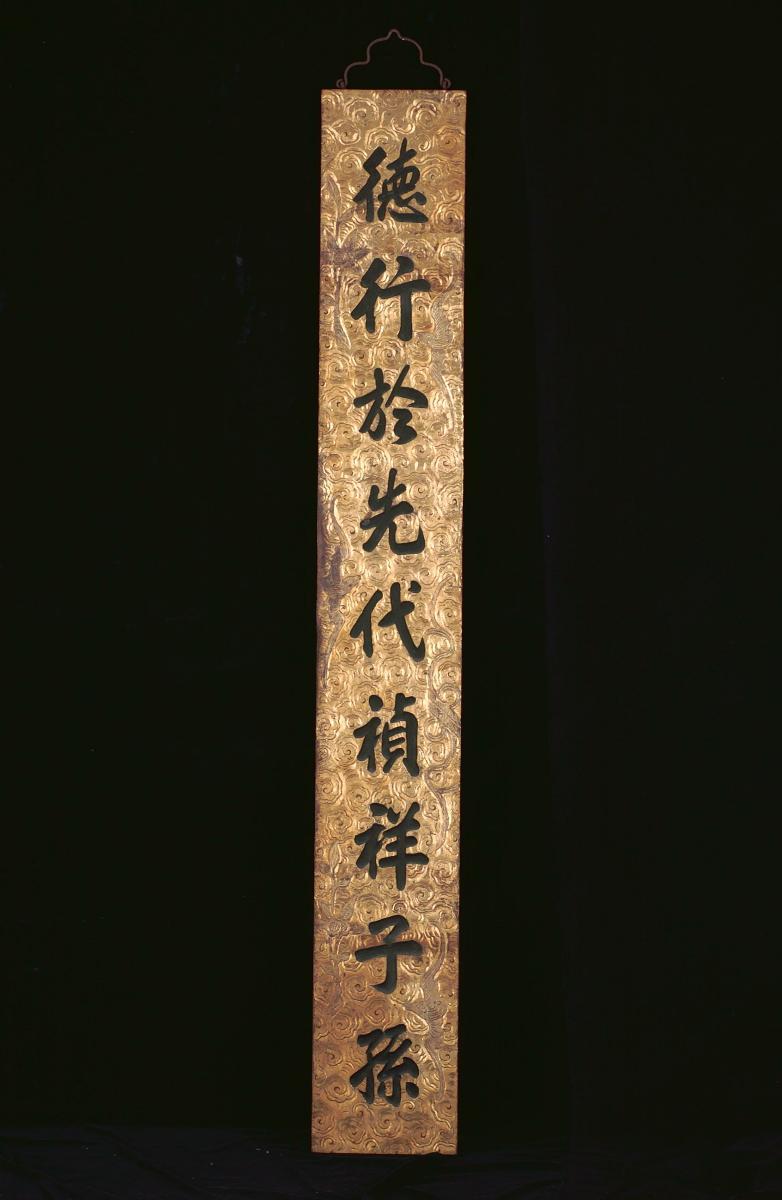 德行於先代禎祥子孫